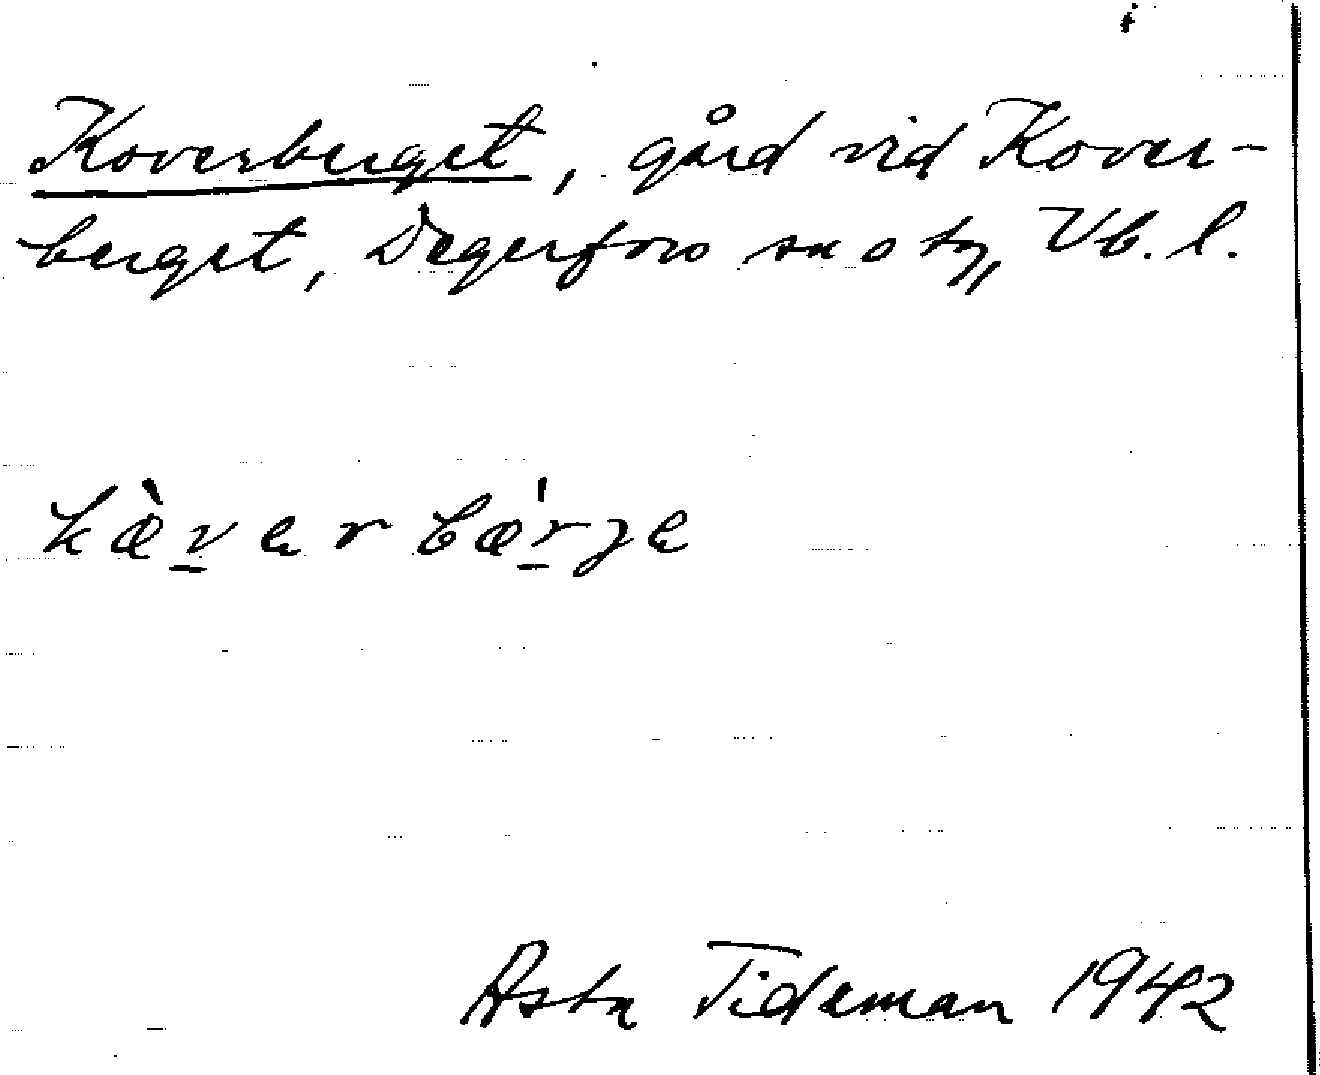 Koverberget, gård vid Kover-
berget, Degerfors sn o tg, Vb. l.
kæ̀v̱er bǽṟje
Asta Tideman 1942